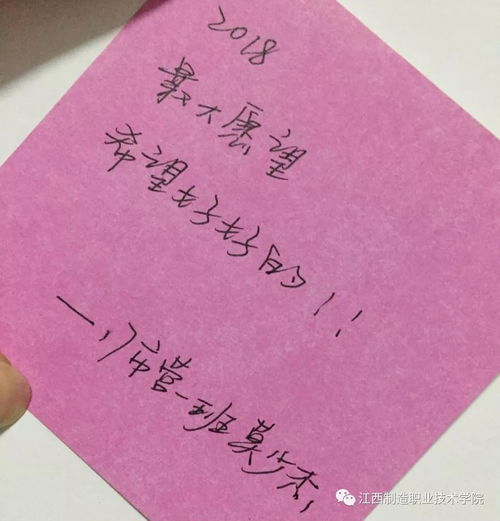 2018
最大愿望
希望好好的!!
一17市营一班莫少杰
江西制造职业技术学院